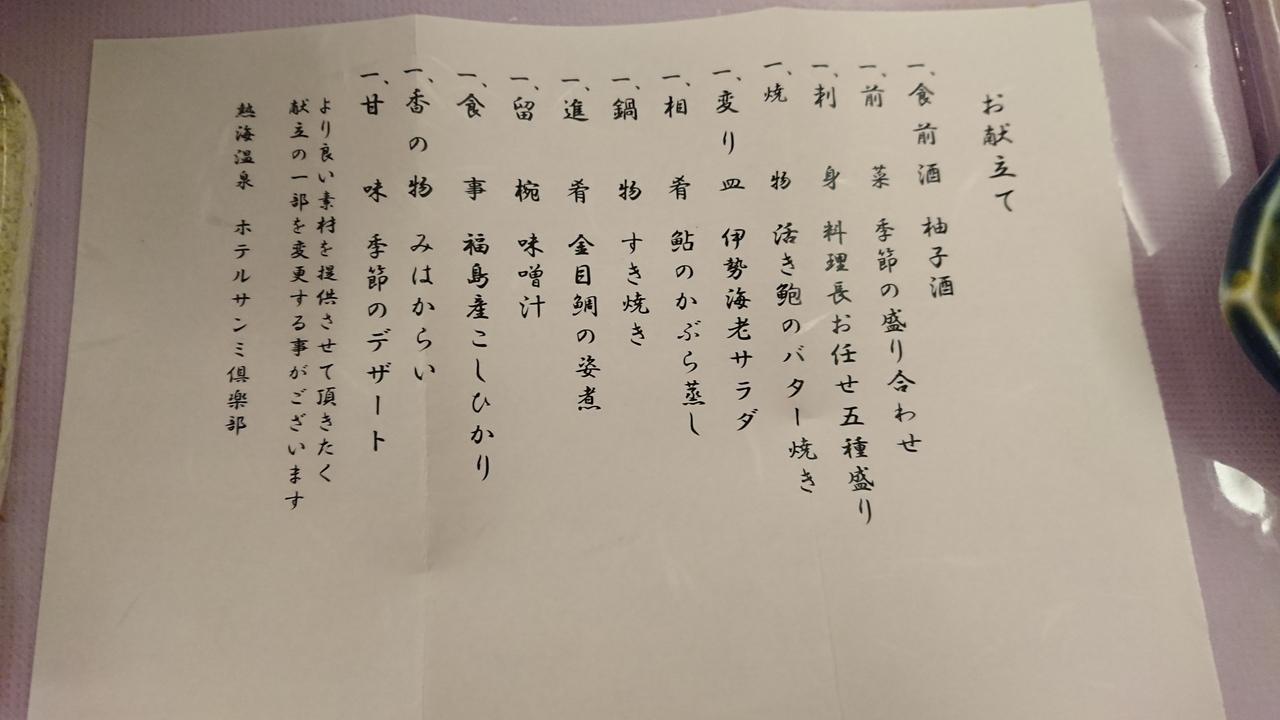 お献立て
一、食前酒 柚子酒
一、前菜 季節の盛り合わせ
一、刺身 料理長お任せ五種盛り
一、焼物 活き鮑のバター焼き
一、変り皿 伊勢海老サラダ
一、相肴 鮎のかぶら蒸し
一、鍋物 すき焼き
一、進肴 金目鯛の姿煮
一、留椀 味噌汁
一、食事 福島産こしひかり
一、香の物 みはからい
一、甘味 季節のデザート
より良い素材を提供させて頂きたく
献立の一部を変更する事がございます
熱海温泉 ホテルサンミ倶楽部